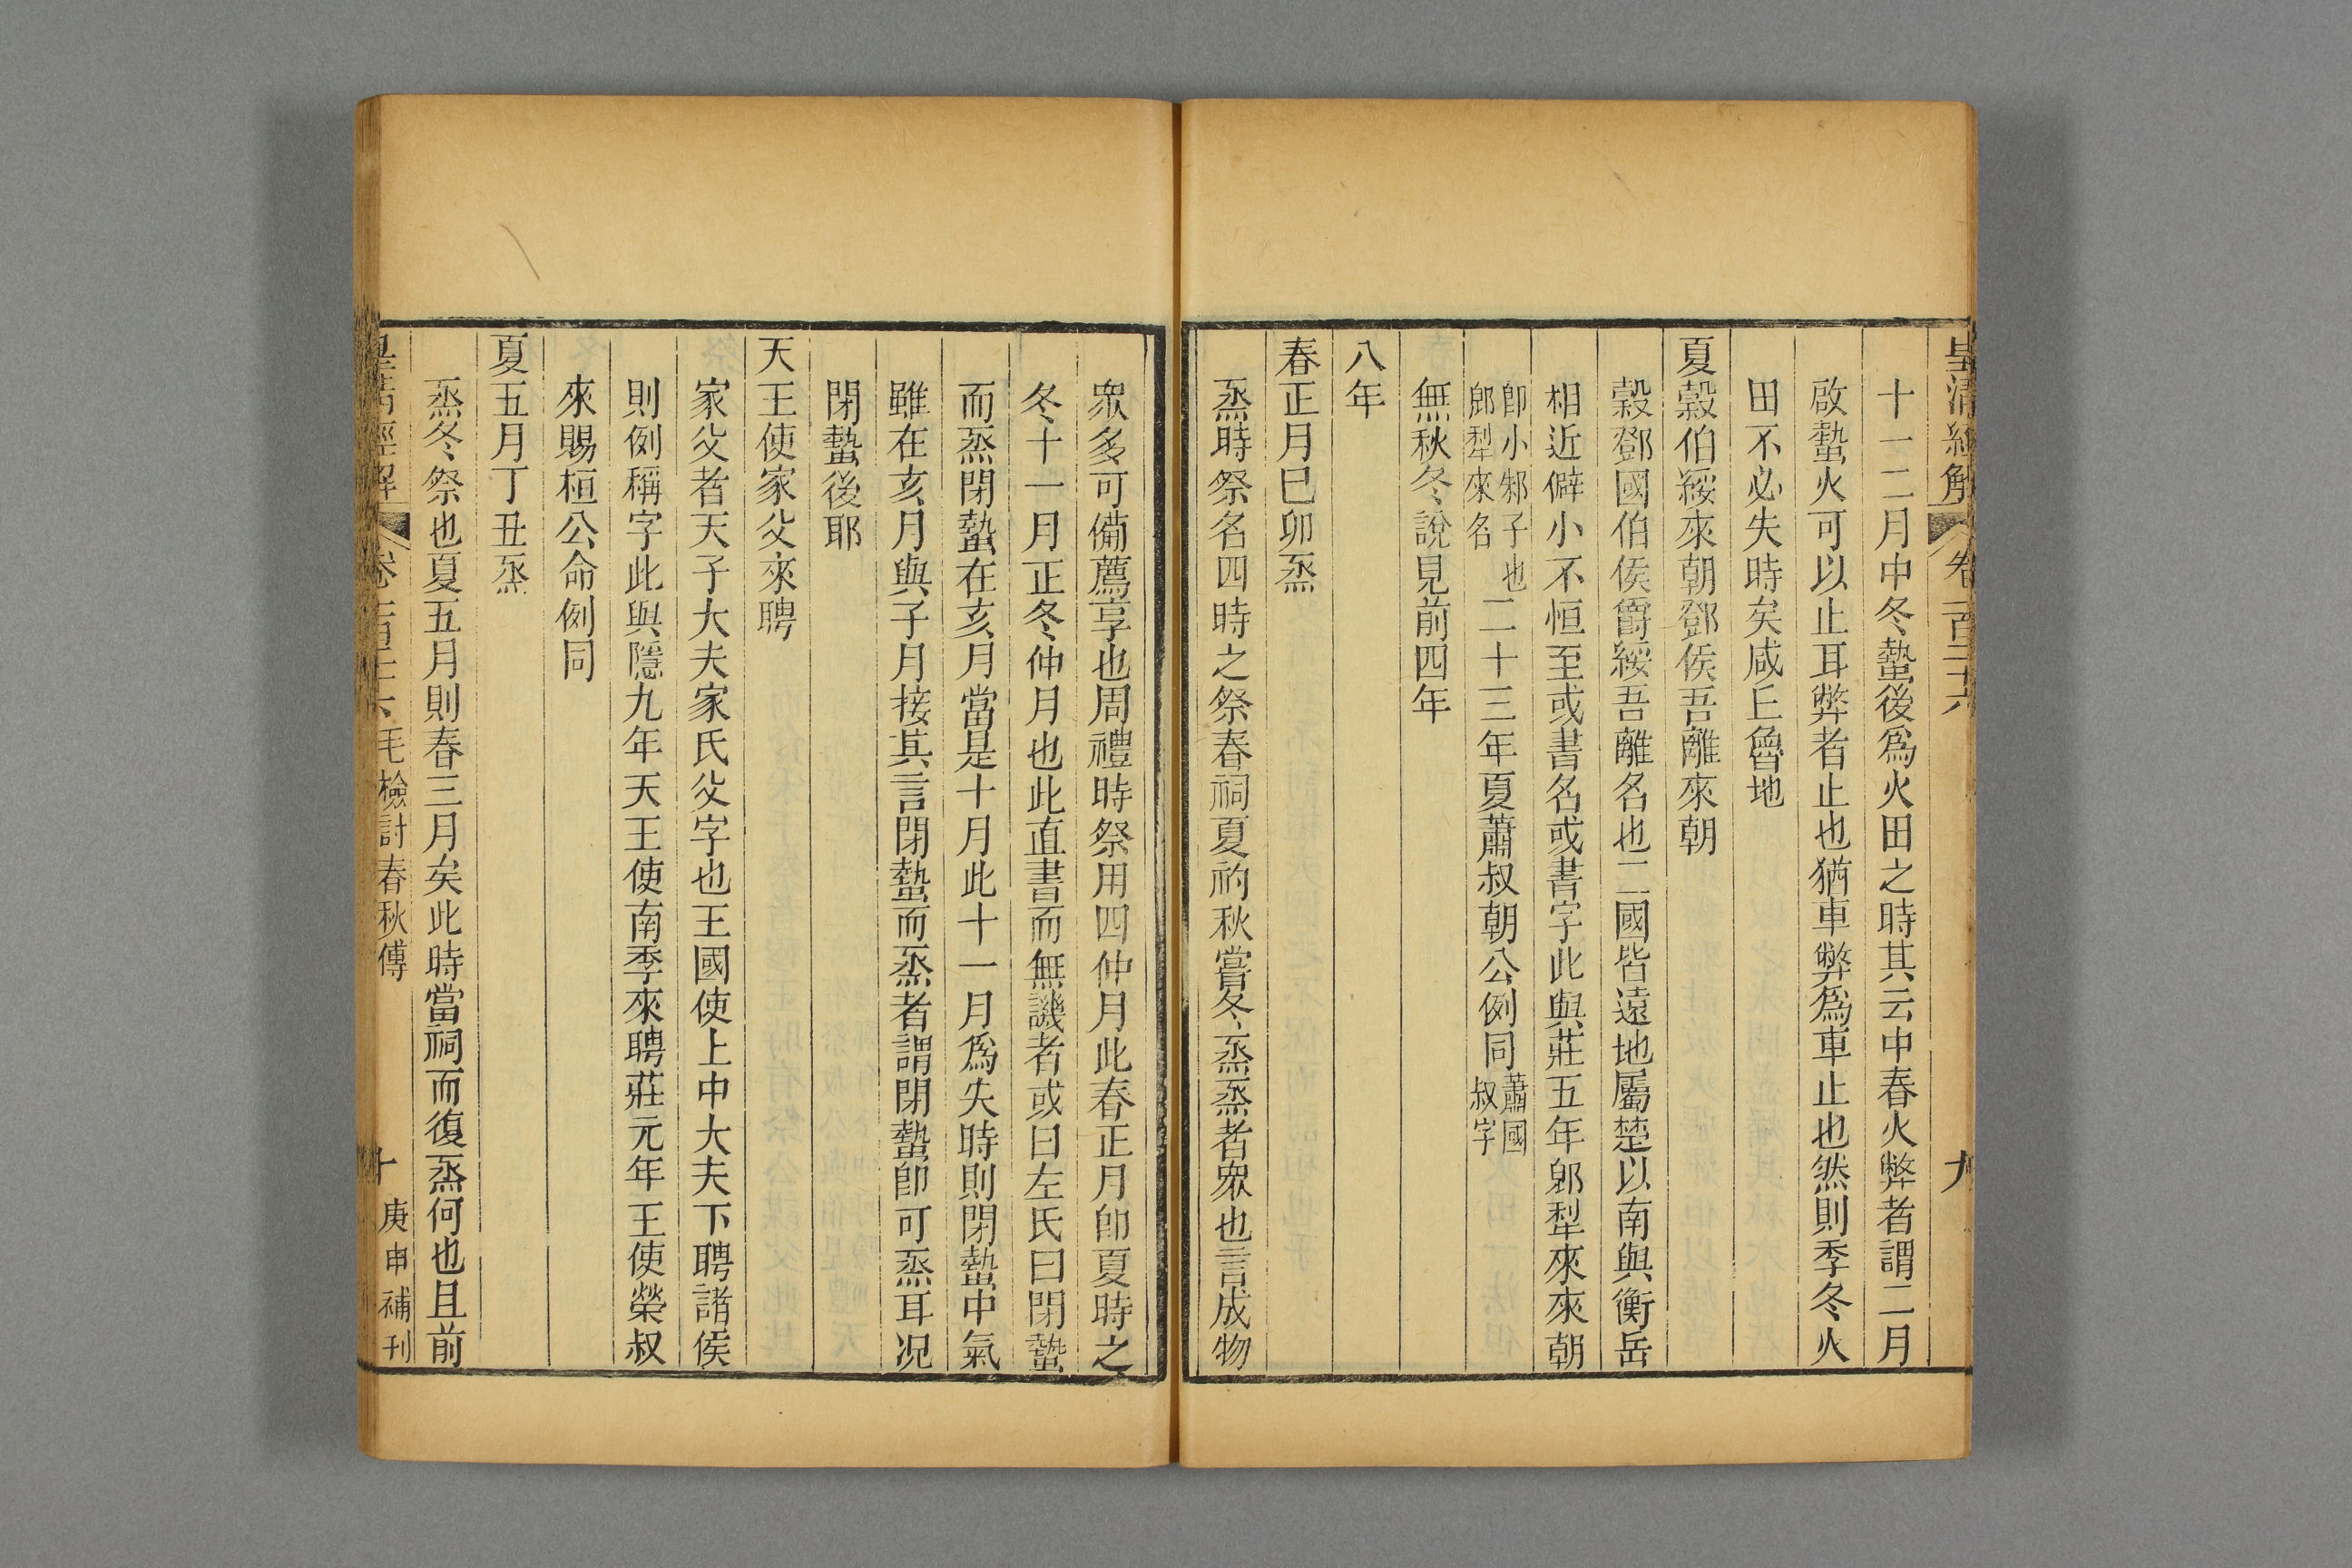 皇清經解
卷一百二十六
九
十一二月中冬蟄後爲火田之時其云中春火弊者謂二月
啟蟄火可以止耳弊者止也猶車弊爲車止也然則季冬火
田不必失時矣咸丘魯地
夏穀伯綏來朝鄧侯吾離來朝
穀鄧國伯侯爵綏吾離名也二國皆遠地屬楚以南與衡岳
相近僻小不恒至或書名或書字此與莊五年郳犁來來朝
卽小邾子也
郳犁來名
二十三年夏蕭叔朝公例同
蕭國
叔字
無秋冬說見前四年
八年
春正月巳卯烝
烝時祭名四時之祭春祠夏礿秋嘗冬烝烝者衆也言成物
衆多可備薦享也周禮時祭用四仲月此春正月卽夏時之
冬十一月正冬仲月也此直書而無譏者或曰左氏曰閉蟄
而烝閉蟄在亥月當是十月此十一月爲失時則閉蟄中氣
雖在亥月與子月接其言閉蟄而烝者謂閉蟄卽可烝耳況
閉蟄後耶
天王使家父來聘
家父者天子大夫家氏父字也王國使上中大夫下聘諸侯
則例稱字此與隱九年天王使南季來聘莊元年王使榮叔
來賜桓公命例同
夏五月丁丑烝
烝冬祭也夏五月則春三月矣此時當祠而復烝何也且前
皇清經解
卷一百二十六
毛檢討春秋傳
十
庚申補刊